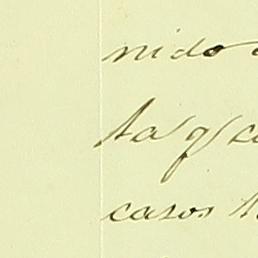 nido
ta q
casos